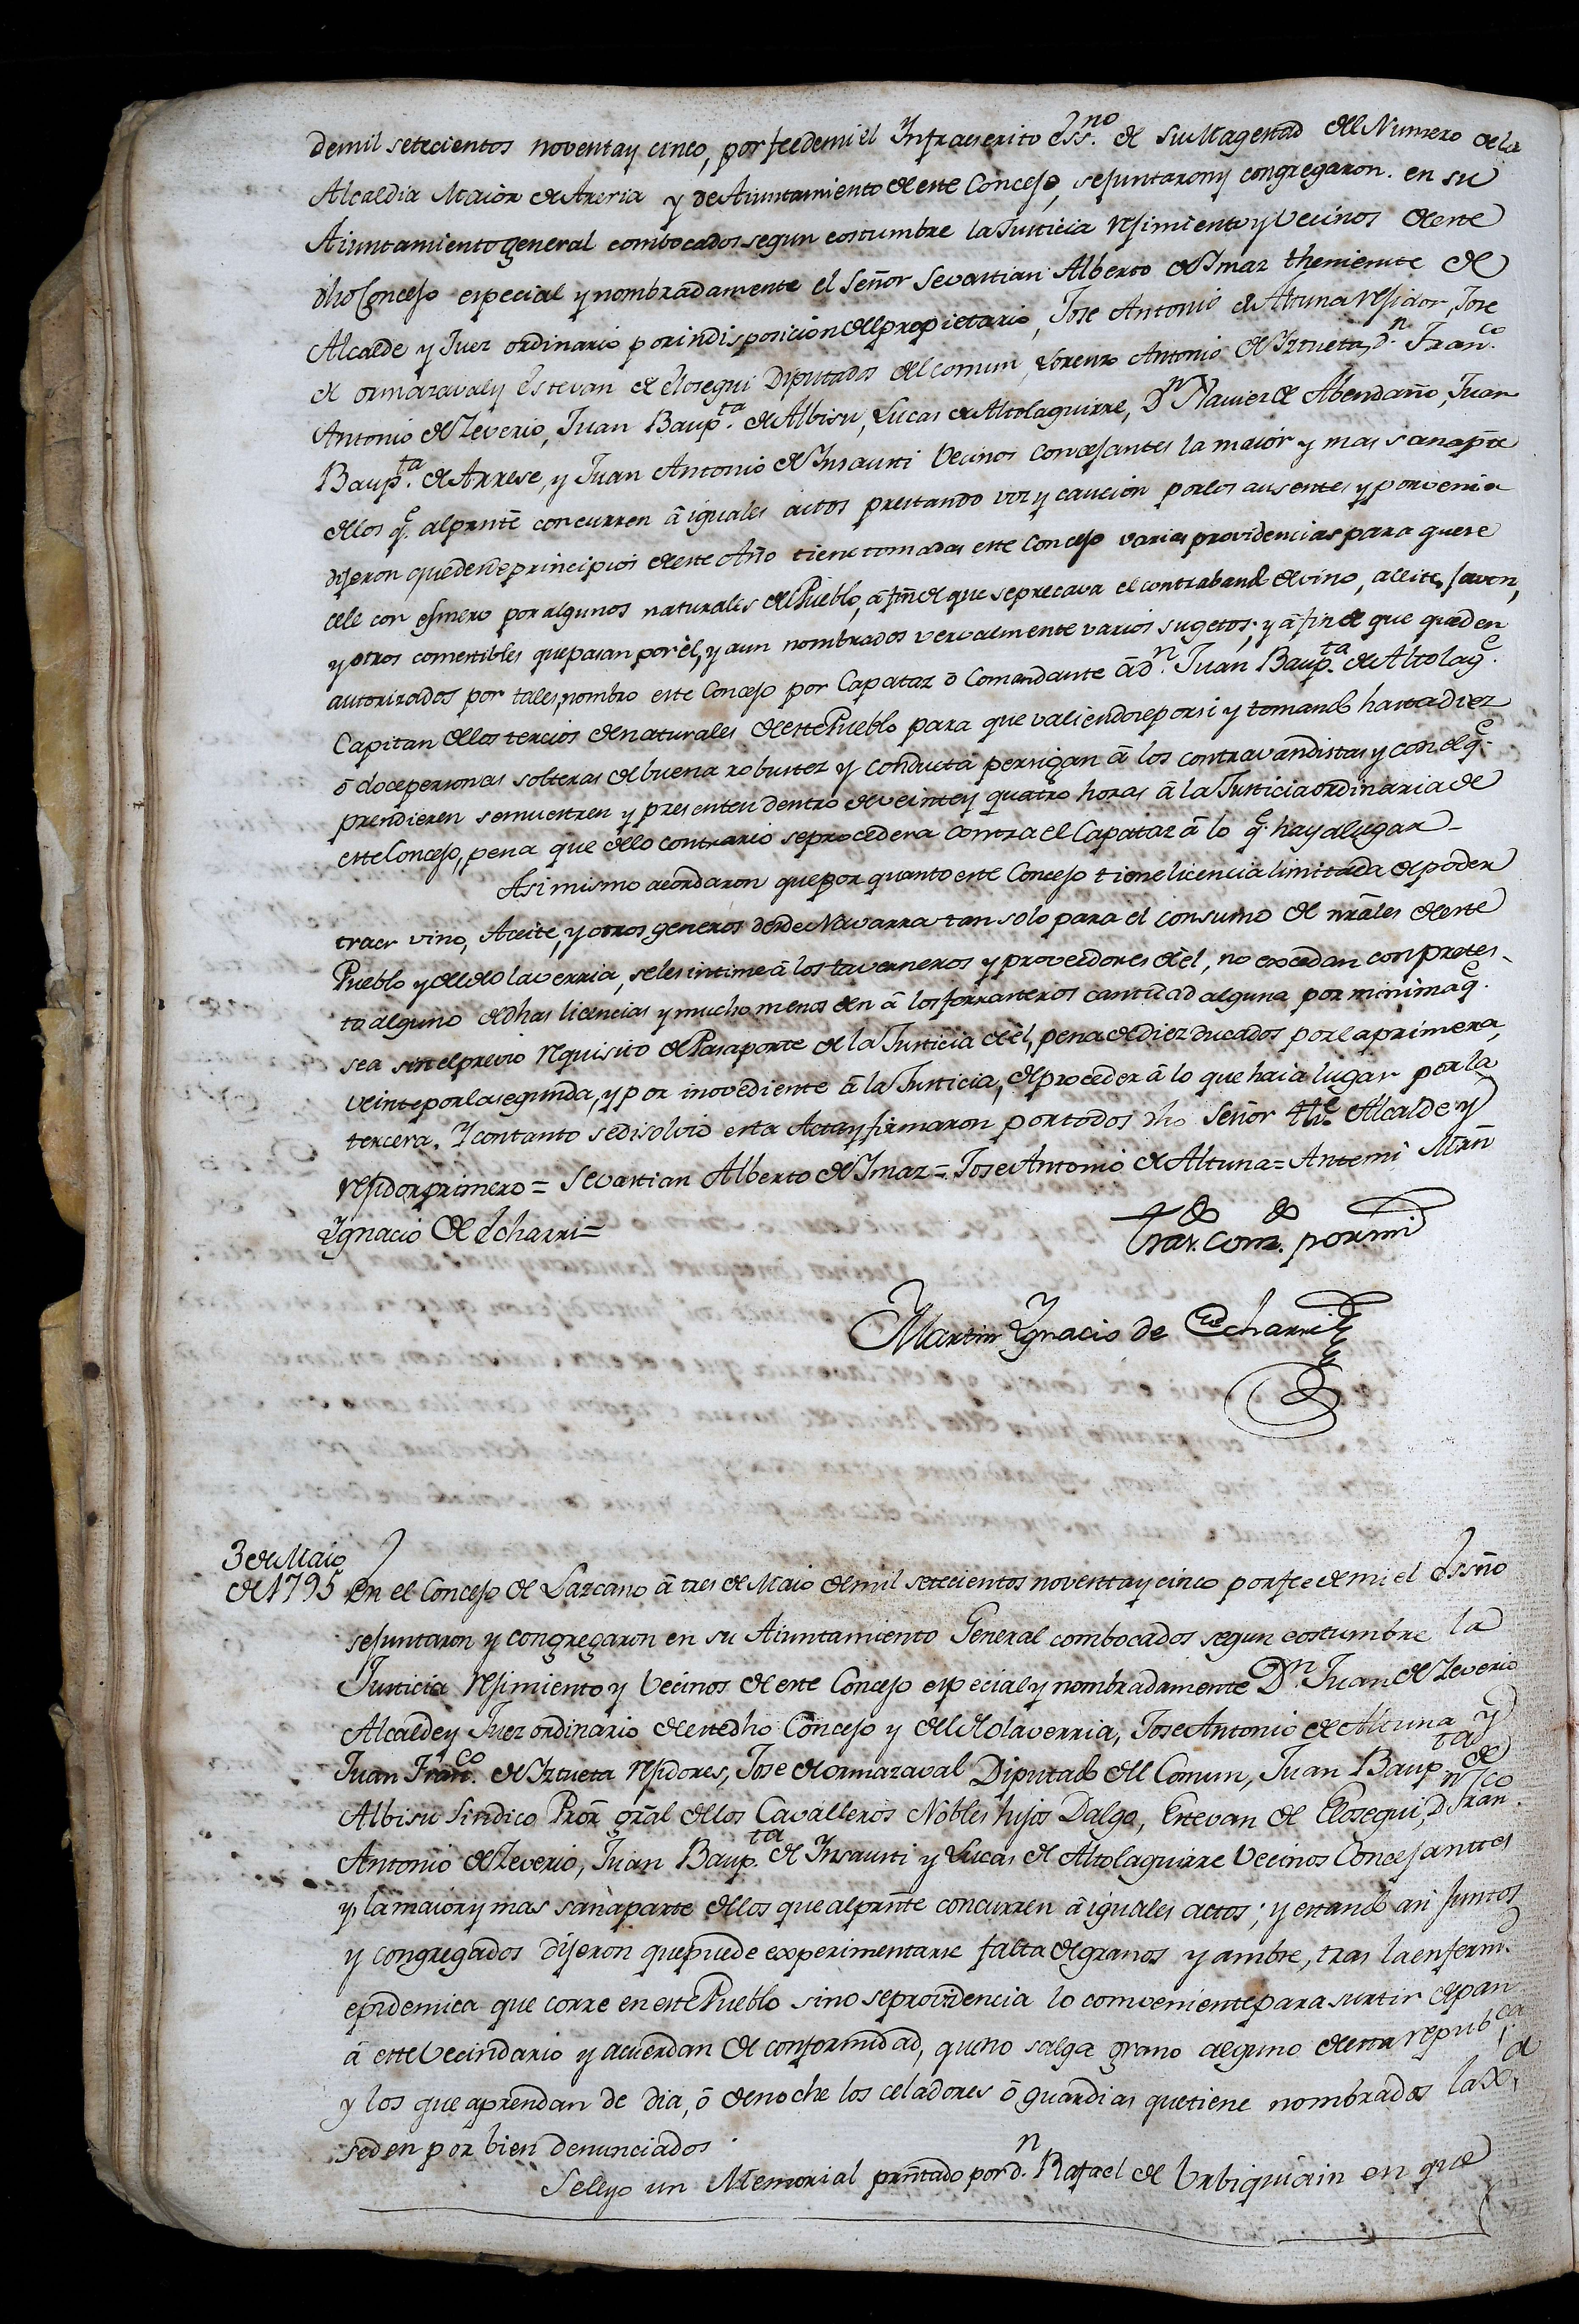 demil setecientos noventay cinco, por feedemi el Ynfraescrito Ess.no de suMagestad del Numero dela
Alcaldia Maior de Areria y de Aiuntamiento de este Concejo, sejuntarony congregaron. en su
Aiuntamiento general combocados segun costumbre la Justicia rejimiento y Vecinos deeste
dho Concejo especial y nombradamente el señor Sevastian Alberto de Ymaz theniente de
Alcalde y Juez ordinario por indisposicion del propietario, Jose Antonio de Altuna rejidor, Jose
de ormazavaly Estevan de Elosegui Diputados del comun, Lorenzo Antonio de Yztueta, D.n Fran.co
Antonio de Zeverio, Juan Baup.ta de Albisu, Lucas de Altolaguirre, D.n Xavier de Abendaño, Juan
Baup.ta de Arrese, y Juan Antonio de Ynsausti Vecinos Concejantes la maior y mas sana pte
delos q.e alprnte concurren â iguales actos prestando voz y caucion por los ausentes y porvenir
dijeron que desde principios deeste Año tiene tomadas este Concejo varias providencias para quese
cele con esmero por algunos naturales del Pueblo, â fin de que seprecava el contrabando de vino, aceite, Javon,
y otros comestibles que pasan por èl, y aun nombrados vervalmente varios sugetos; y â fin de que queden
autorizados por tales, nombro este Concejo por Capataz o Comandante âd.n Juan Baup.ta de Altolag.e
Capitan delos tercios denaturales deeste Pueblo para que valiendose porsi y tomando hastadiez
ô docepersonas solteras debuena robustez y conducta persigan â los contravandistas y con el q.e
prendieren semuestren y presenten dentro deveintey quatro horas â la Justicia ordinaria de
esteConcejo, pena que delo contrario seprocedera contra el Capataz â lo q.e hayalugar_
Asi mismo acordaron quepor quanto este Concejo tiene licencia limitada depoder
traer vino, Aceite, y otros generos desde Navarra tan solo para el consumo de nrâles deeste
Pueblo y deel de olaverria, seles intime â los taverneros y proveedores deèl, no excedan con protes-
to alguno dedhas licencias y mucho menos den â los forrasteros cantidad alguna por minima q.e
sea sin el previo requisito de Pasaporte de la Justicia deèl, pena dediez ducados por laprimera,
veinte porlasegunda, y por inovediente â la Justicia, deproceder â lo que haia lugar por la
tercera. Y contanto sedisolvio esta Acta y firmaron por todos dho Señor the Alcalde y
rejidor primero = Sevastian Alberto de Ymaz = Jose Antonio de Altuna = Antemi Mrñ
Ygnacio de Echarri =
Martin Ygnacio de Echarri
3 de Maio
de 1795
En el Concejo de Lazcano â tres de Maio demil setecientos noventay cinco porfee demi el Essño
sejuntaron y congregaron en su Aiuntamiento General combocados segun costumbre la
Justicia rejimiento y Vecinos deeste Concejo especial y nombradamente D.n Juan de Zeverio
Alcaldey Juez ordinario deestedho Concejo y del de olaverria, Jose Antonio de Altuna y
Juan Fran.co de Yztueta rejidores, Jose de ormazaval Diputado del Comun, Juan Baup.ta de
Albisu Sindico Pror grâl delos Cavalleros Nobles hijos Dalgo, Estevan de Elosegui, D.n Fran.co
Antonio de Zeverio, Juan Baup.ta de Ynsausti y Lucas de Altolaguirre Vecinos Concejanttes
y lamaiory mas sanaparte delos que alprnte concurren â iguales actos; y estando asi Juntos
y congregados dijeron quepuede experimentarse falta degranos y ambre, tras laenferm.d
epidemica que corre en este Pueblo sino seprovidencia lo combenientepara surtir depan
â este Vecindario y acuerdan de conformidad, queno salga grano alguno deesta repub.ca
y los que aprendan de dia, ô denoche los celadores ô guardias quetiene nombrados
seden por bien denunciados.
Seleyo un Memorial prntado por d.n Rafael de Urbiquiain en que